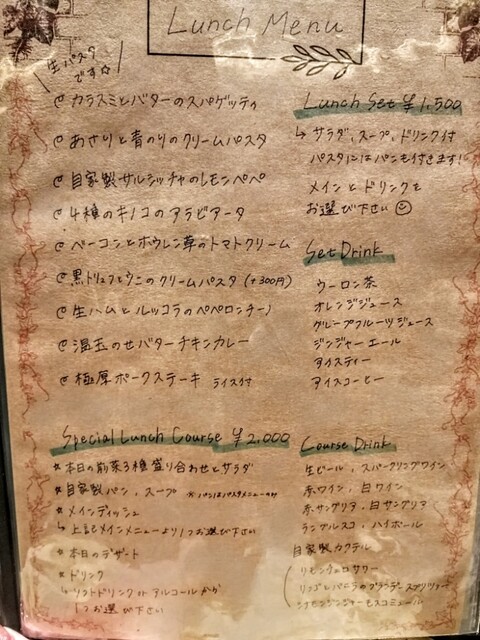 Lunch Menu
生パスタです☆
@ カラスミとバターのスパゲッティ
@ あさりと青のりのクリームパスタ
@ 自家製サルシッチャのレモンペペ
@ 4種のキノコのアラビアータ
@ ベーコンとホウレン草のトマトクリーム
@ 黒トリュフとウニのクリームパスタ (+300円)
@ 生ハムとルッコラのペペロンチーノ
@ 温玉のせバターチキンカレー
@ 極厚ポークステーキ ライス付
Lunch Set ¥1,500
↳ サラダ、スープ、ドリンク付
パスタにはパンも付きます!
メインとドリンクを
お選び下さい ☺
Set Drink
ウーロン茶
オレンジジュース
グレープフルーツジュース
ジンジャーエール
アイスティー
アイスコーヒー
Special Lunch Course ¥2,000
★ 本日の前菜3種盛り合わせとサラダ
★ 自家製パン、スープ ※パンはパスタメニューのみ
★ メインディッシュ
↳ 上記メインメニューより1つお選び下さい
★ 本日のデザート
★ ドリンク
↳ ソフトドリンク or アルコールから
1つお選び下さい
Course Drink
生ビール、スパークリングワイン
赤ワイン、白ワイン
赤サングリア、白サングリア
ランブルスコ、ハイボール
自家製カクテル
リモンチェロサワー
リンゴとバニラのグランデースプリッツァー
シナモンジンジャーモスコミュール